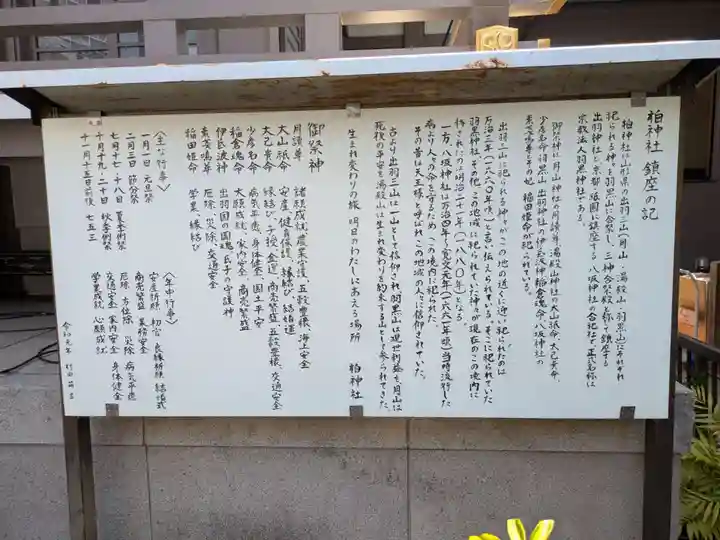 柏神社 鎮座の記
柏神社は山形県の出羽三山(月山 湯殿山 羽黒山)にそれぞれ
祀られる神を羽黒山に合祭し、三神合祭殿と称して鎮座する
出羽神社と京都祇園に鎮座する八坂神社の合祀社で、正式名称は
宗教法人羽黒神社である。
御祭神は月山神社の月読尊、湯殿山神社の大山祇命、大己貴命、
少彦名命、羽黒山 出羽神社の伊氐波神 稲倉魂命、八坂神社の
素戔嗚尊とその妃 稲田姫命が祀られている。
出羽三山に祀られる神々がこの地の近くに遷し祀られたのは
万治三年(一六六〇年頃)と言い伝えられている。そこに祀られていた
羽黒神社、その他この地域に祀られていた神々が現在のこの境内に
移されたのは明治二十一年(一八八〇年)となる
一方、八坂神社は万治四年〜寛文元年(一六六一年頃)当時流行した
病より人々の命を守るため、この境内に祀られた。
その昔は天王様と呼ばれ、この地域の人に信仰されていた。
古より出羽三山は一山として信仰され、羽黒山は現世利益を、月山は
死後の平安を、湯殿山は生れ変わりを約束する山として参られてきた。
生まれ変わりの旅 明日のわたしにあえる場所 柏神社
御祭神
月読尊 諸願成就、農業守護、五穀豊穣、海上安全
大山祇命 安産、健育保護、縁結び、結婚運
大己貴命 縁結び、子授、金運、商売繁盛、五穀豊穣、交通安全
少彦名命 病気平癒、身体健全、国土平安
稲倉魂命 大願成就、家内安全、商売繁盛
伊氐波神 出羽国の国魂、氏子の守護神
素戔嗚尊 厄除、災除、交通安全
稲田姫命 学業、縁結び
〈主な行事〉
一月一日 元旦祭
二月三日 節分祭
七月十七・十八日 夏季例祭
十月十九・二十日 秋季例祭
十一月十五日前後 七五三
〈年中行事〉
安産祈願 初宮 良縁祈願 結婚式
商売繁盛 業務安全
厄除 方位除 災除 病気平癒
交通安全 家内安全 身体健全
学業成就 心願成就
令和元年